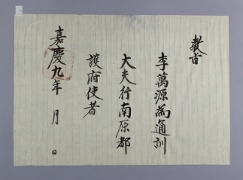 敎旨
李萬源爲通訓
大夫行南原都
護府使者
嘉慶九年 月 日